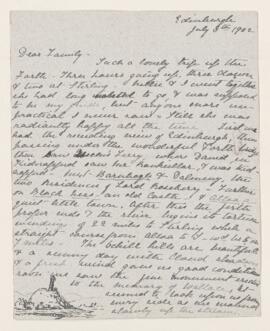 Edinburgh
July 8th 1902
Dear Family -
Such a lovely trip up the
Forth - Three hours going up, three down
& two at Stirling - Nellie & I went together
she had long wanted to go & was supposed
to be my guide, but anyone more un-
practical I never saw - Still she was
radiantly happy all the time. First we
had the receding view of Edinburgh, then
passing under the wonderful Forth bridge
then Queen's Ferry where David, in
Kidnapped saw the and was kid-
napped - next Barnbogle & Dalmeny, the
two residences of Lord Rosebery - Further
on Black ness an old Castle & Alloa, a
quiet little town. After this the Forth
proper ends & the river begins its tortuous
winding of 22 miles to Stirling while a
straight course from Alloa to is
7 miles. The Ochill hills are beautiful
& a sunny day with cloud shadows
& a fresh wind gave us good conditions
soon we saw the fine monument erected
to the memory of Wallace. It
seemed to look upon us from
every side as we wound
slowly up the stream